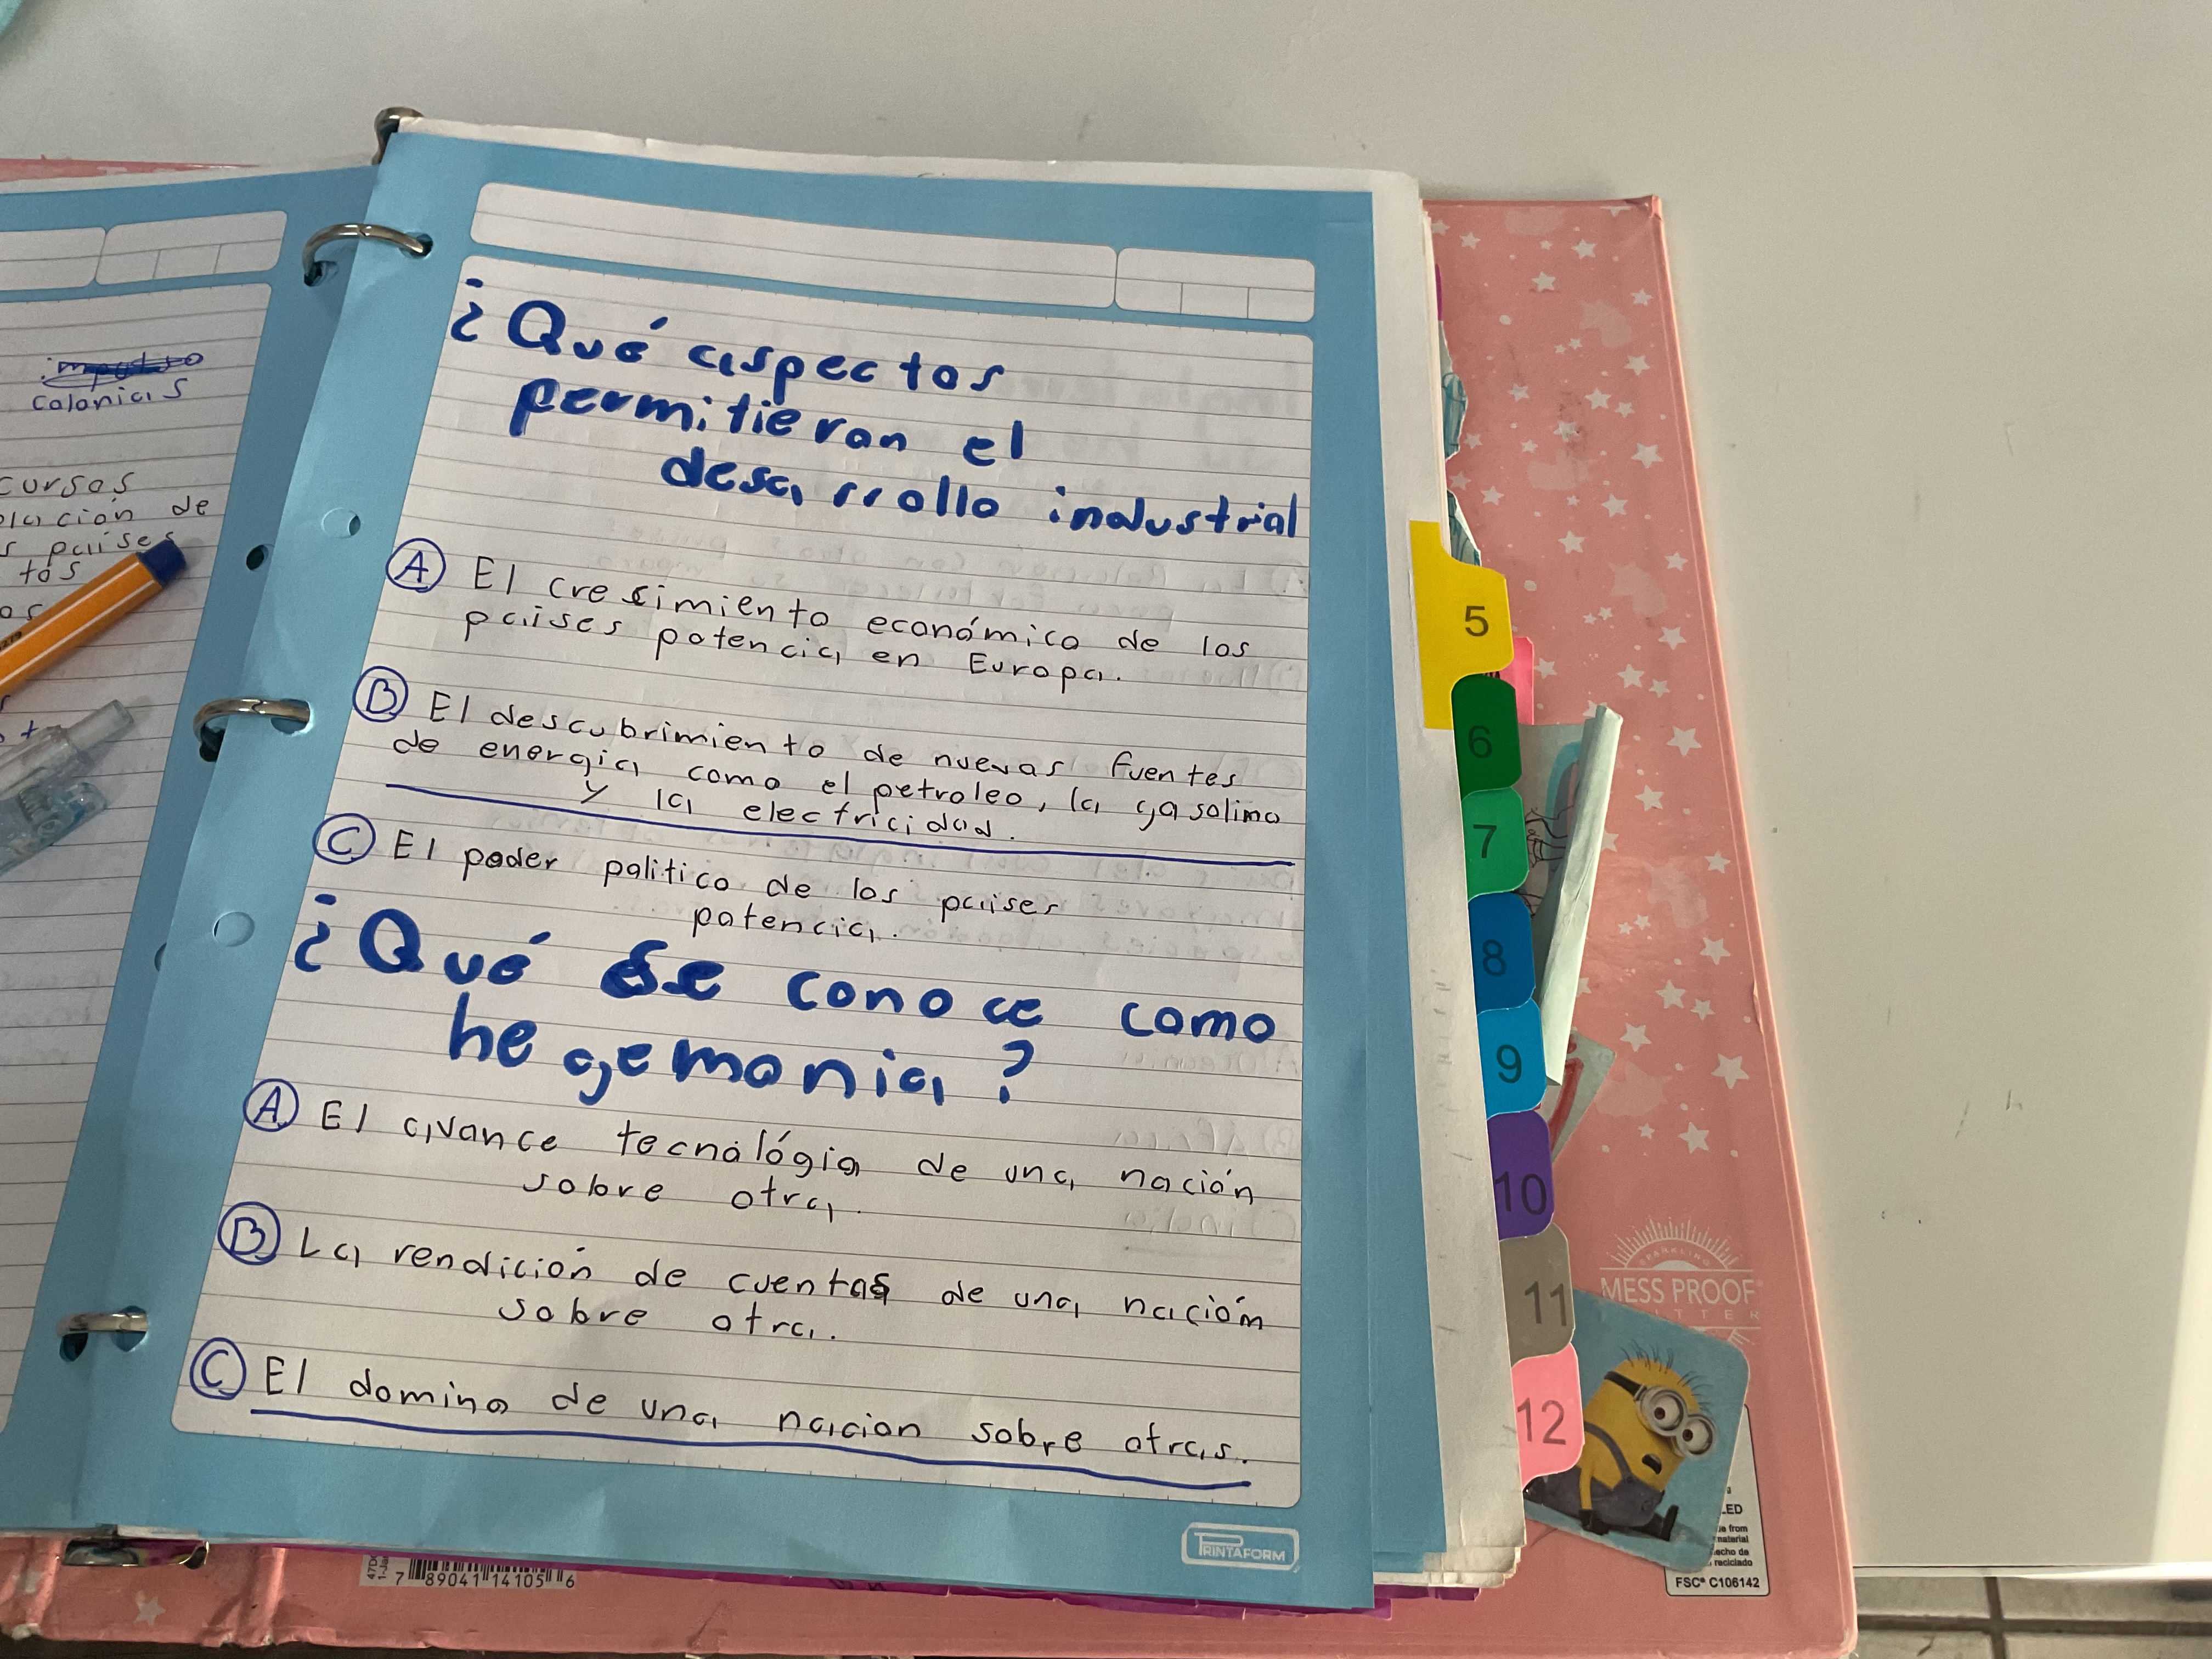 colonias
cursos
lación de
s paises
tas
os
¿Qué aspectos
permitieron el
desarrollo industrial
A El cresimiento económico de los
paises potencia en Europa.
B El descubrimiento de nuevas fuentes
de energia como el petroleo, la gasolina
y la electricidad.
C El poder politico de los paises
potencia.
¿Qué se conoce como
hegemonia?
A El avance tecnológio de una nación
sobre otra.
B La rendición de cuentas de una nación
sobre otra.
C El domino de una nacion sobre otras.
PRINTAFORM
5
6
7
8
9
10
11
12
SPARKLING
MESS PROOF
GLITTER
LED
ue from
material
echo de
l reciclado
FSC® C106142
7 89041 14105 6